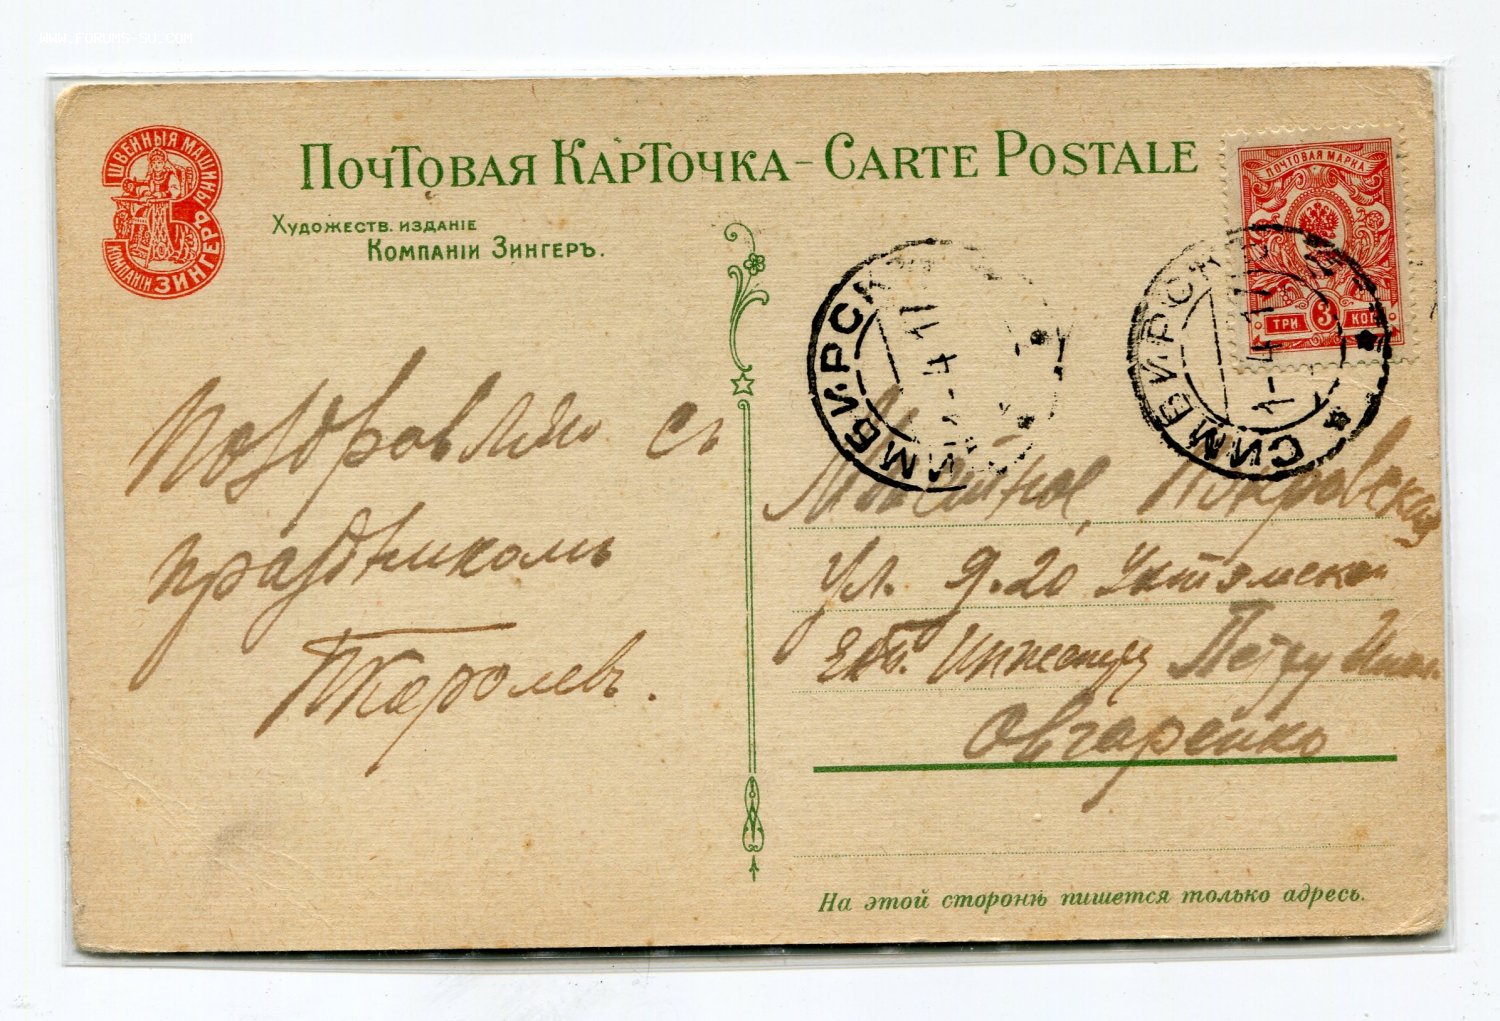 WWW.FORUMS-SU.COM
ШВЕЙНЫЯ МАШИНЫ
КОМПАНІИ ЗИНГЕРЪ
ПОЧТОВАЯ КАРТОЧКА – CARTE POSTALE
ХУДОЖЕСТВ. ИЗДАНІЕ
КОМПАНІИ ЗИНГЕРЪ.
ПОЧТОВАЯ МАРКА
ТРИ 3 КОП
СИМБИРСКЪ
СИМБИРСКЪ
Поздравляю съ
праздникомъ
ПКоролевъ.
Мѣстное, Покровская
Ул. д. 20
Его Инженеру Петру
Овчаренко
На этой сторонѣ пишется только адресъ.